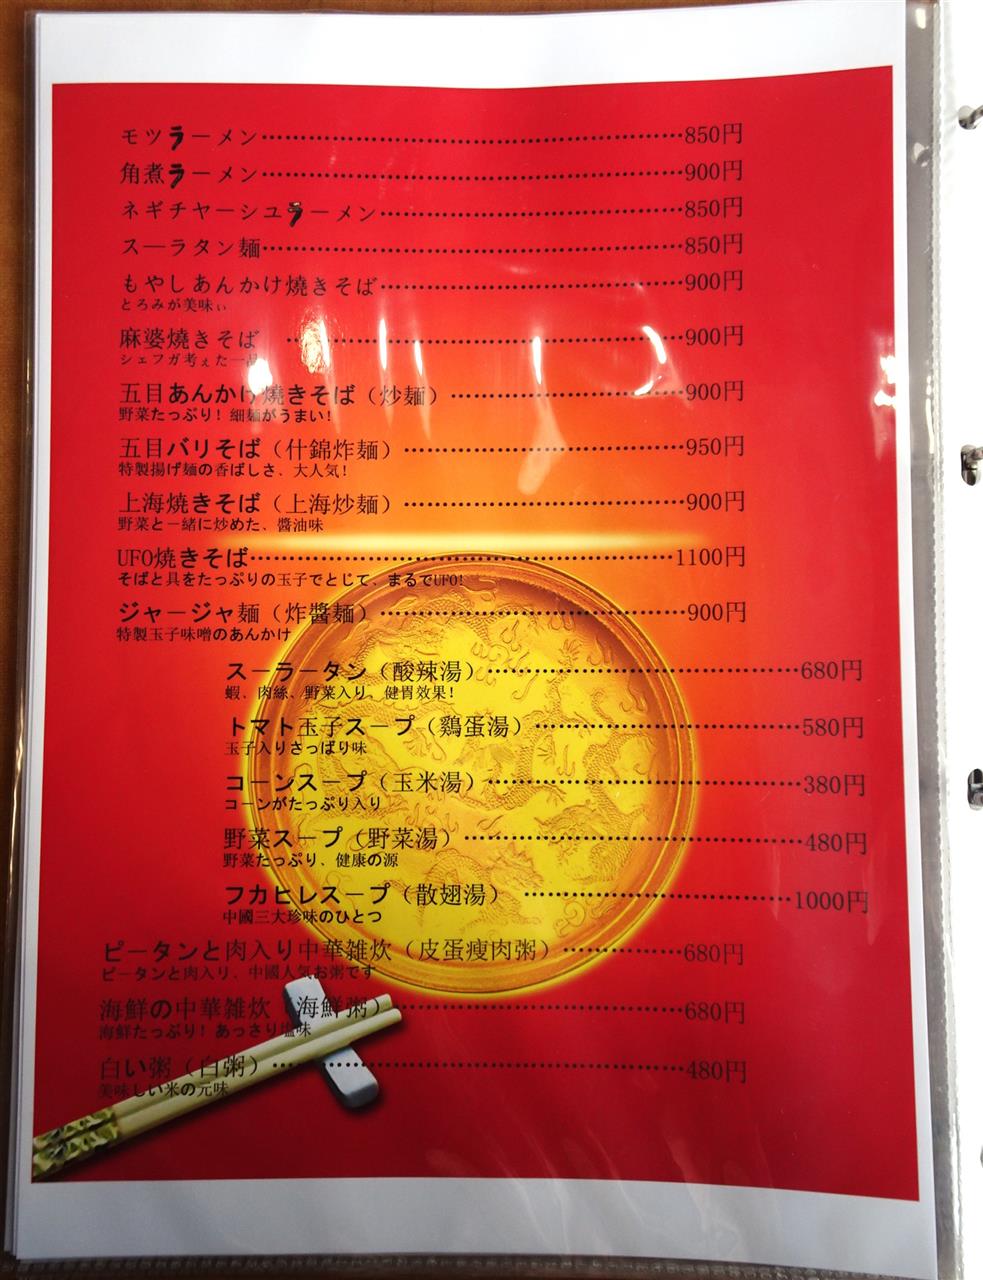 モツラーメン……………………………………………850円
角煮ラーメン……………………………………………900円
ネギチヤーシユラーメン………………………………850円
スーラタン麺……………………………………………850円
もやしあんかけ焼きそば………………………………900円
とろみが美味ぃ
麻婆焼きそば …………………………………………900円
シェフガ考ぇた一品
五目あんかけ焼きそば（炒麺）………………………900円
野菜たっぷり！細麺がうまい！
五目バリそば（什錦炸麺）……………………………950円
特製揚げ麺の香ばしさ、大人気！
上海焼きそば（上海炒麺）……………………………900円
野菜と一緒に炒めた、醬油味
UFO焼きそば……………………………………………1100円
そばと具をたっぷりの玉子でとじて、まるでUFO！
ジャージャ麺（炸醬麺）………………………………900円
特製玉子味噌のあんかけ
スーラータン（酸辣湯）………………………………680円
蝦、肉絲、野菜入り、健胃效果！
トマト玉子スープ（鶏蛋湯）…………………………580円
玉子入りさっぱり味
コーンスープ（玉米湯）………………………………380円
コーンがたっぷり入り
野菜スープ（野菜湯）…………………………………480円
野菜たっぷり、健康の源
フカヒレスープ（散翅湯） …………………………1000円
中國三大珍味のひとつ
ピータンと肉入り中華雑炊（皮蛋瘦肉粥）…………680円
ピータンと肉入り、中國人気お粥です
海鮮の中華雑炊（海鮮粥）……………………………680円
海鮮たっぷり！あっさり塩味
白い粥（白粥）…………………………………………480円
美味しい米の元味